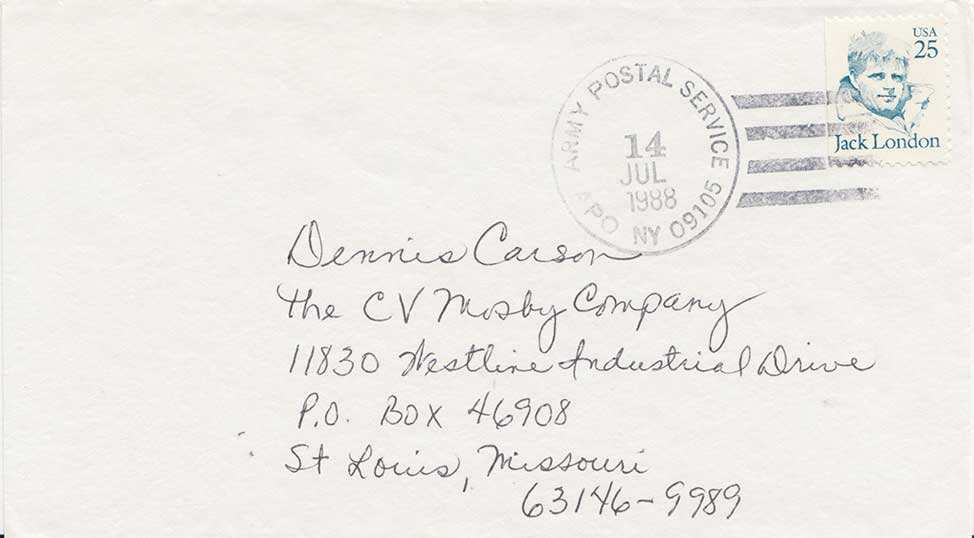 USA
25
Jack London
ARMY POSTAL SERVICE
14
JUL
1988
APO NY 09105
Dennis Carson
the CV Mosby Company
11830 Westline Industrial Drive
P.O. Box 46908
St Louis, Missouri
63146-9989